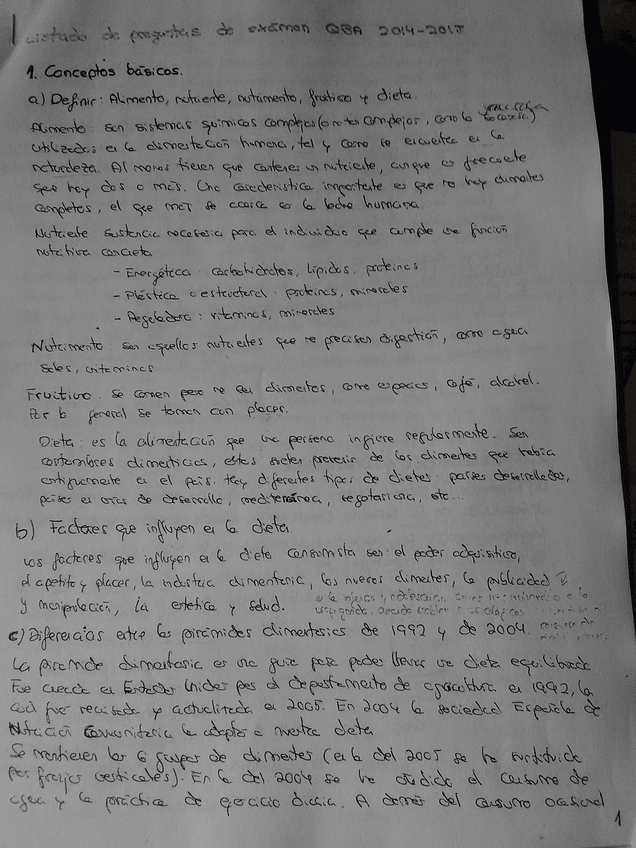 Listado de preguntas de exámen QBA 2014-2017
1. Conceptos básicos.
a) Definir: Alimento, nutriente, nutrimento, fruitivo y dieta.
Alimento: son sistemas químicos complejos (o no tan complejos, como la
utilizados en la alimentación humana, tal y como se encuentra en la
naturaleza. Al menos tienen que contener un nutriente, aunque es frecuente
que hay dos o más. Una característica importante es que no hay alimentos
completos, el que más se acerca es la leche humana.
Nutriente: sustancia necesaria para el individuo que cumple una función
nutritiva concreta
- Energética: carbohidratos, lípidos, proteínas
- Plástica o estructural: proteínas, minerales
- Reguladora: vitaminas, minerales
Nutrimento son aquellos nutrientes que no precisan digestión, como agua
sales, vitaminas
Fruitivo: Se comen pero no son alimentos, como especias, café, alcohol.
Por lo general se toman con placer.
Dieta: es la alimentación que una persona ingiere regularmente. Son
costumbres alimenticias, estas suelen provenir de los alimentos que había
antiguamente en el país. Hay diferentes tipos de dietas: países desarrollados,
países en vías de desarrollo, mediterránea, vegetariana, etc...
b) Factores que influyen en la dieta.
Los factores que influyen en la dieta consumista son: el poder adquisitivo,
el apetito y placer, la industria alimentaria, los nuevos alimentos, la publicidad
y manipulación, la estética y salud.
c) Diferencias entre las pirámides alimentarias de 1992 y de 2004.
La pirámide alimentaria es una guía para poder llevar una dieta equilibrada.
Fue creada en Estados Unidos por el departamento de agricultura en 1992, la
cual fue revisada y actualizada en 2005. En 2004 la sociedad Española de
Nutrición Comunitaria la adapta a nuestra dieta
Se mantienen los 6 grupos de alimentos (en la del 2005 se ha sustituido
por franjas verticales). En la del 2004 se ha añadido el consumo de
agua y la práctica de ejercicio diaria. A demás del consumo ocasional
1